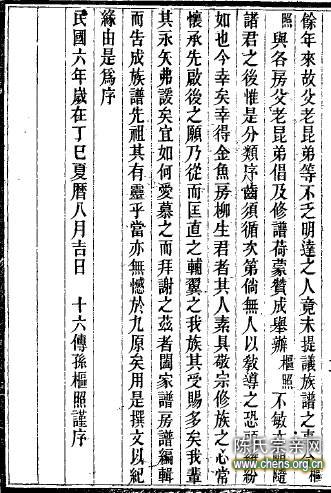 餘年來故父老昆弟等不乏明達之人竟未提議族譜之
樞照與各房父老昆弟倡及修譜荷蒙贊成舉辦樞照不敏
諸君之後惟是分類序齒須循次第倘無人以教導之恐
如也今幸矣幸得金魚房柳生君者其人素具敬宗修族之心常
懷承先啟後之願乃從而匡直之輔翼之我族其受賜多矣我輩
其永矢弗諼矣宜如何愛慕之而拜謝之茲者闔家譜房譜編輯
而告成族譜先祖其有靈乎當亦無憾於九原矣用是撰文以紀
緣由是為序
民國六年歲在丁巳夏曆八月吉日 十六傳孫樞照謹序
陈氏宗亲网
www.chens.org.cn